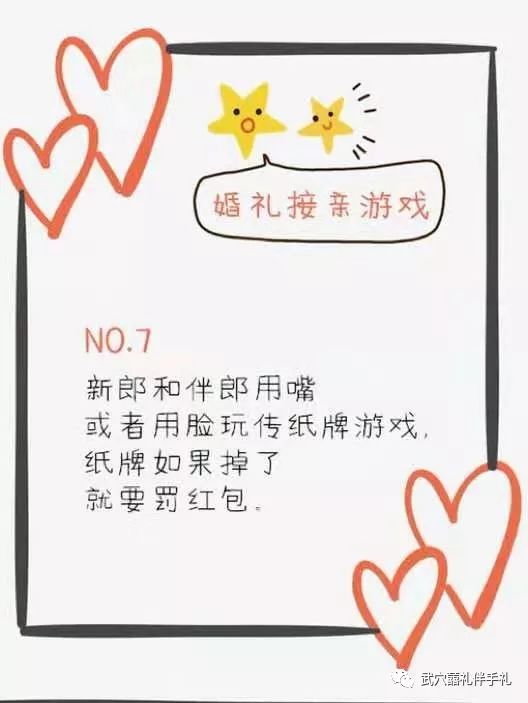 婚礼接亲游戏
NO.7
新郎和伴郎用嘴
或者用脸玩传纸牌游戏,
纸牌如果掉了
就要罚红包。
武穴囍礼伴手礼